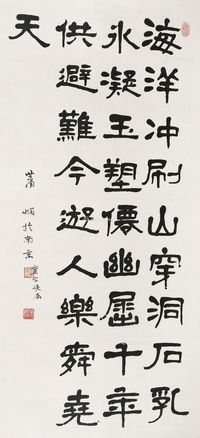 海洋冲刷山穿洞石乳
氷凝玉塑僊幽居千年
供避難今遊人樂舞堯
天
蕭嫻於南京